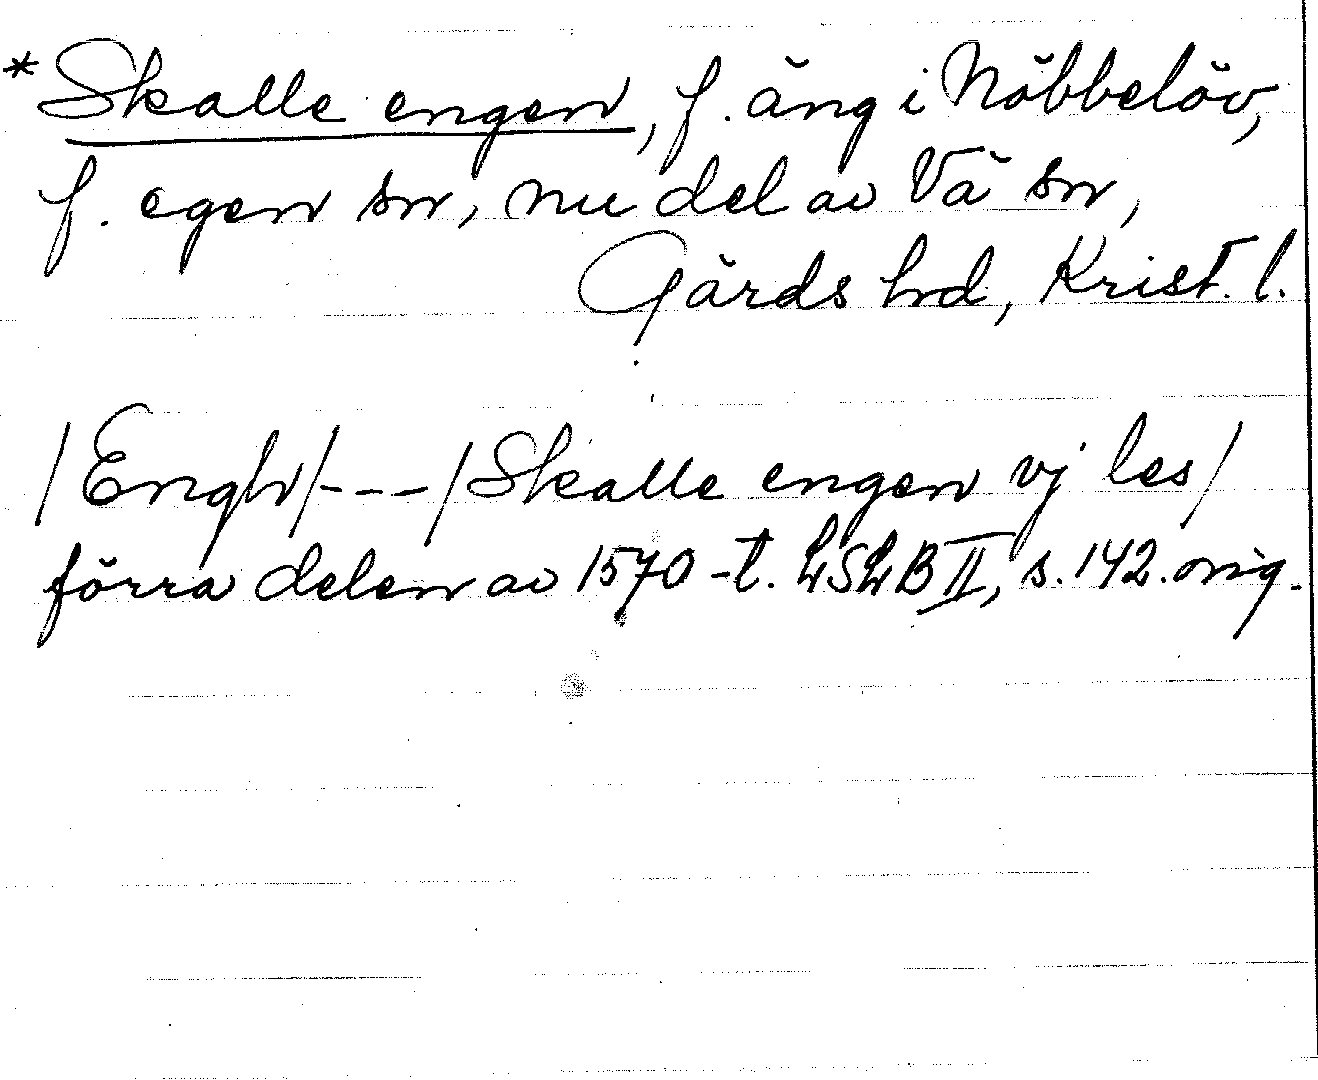 * Skalle engen, f. äng i Nöbbelöv,
f. egen sn, nu del av Vä sn,
Gärds hd, Krist. l.
/Engh/---/Skalle engen vj les/
förra delen av 1570-t. LSLB II, s. 142. orig.